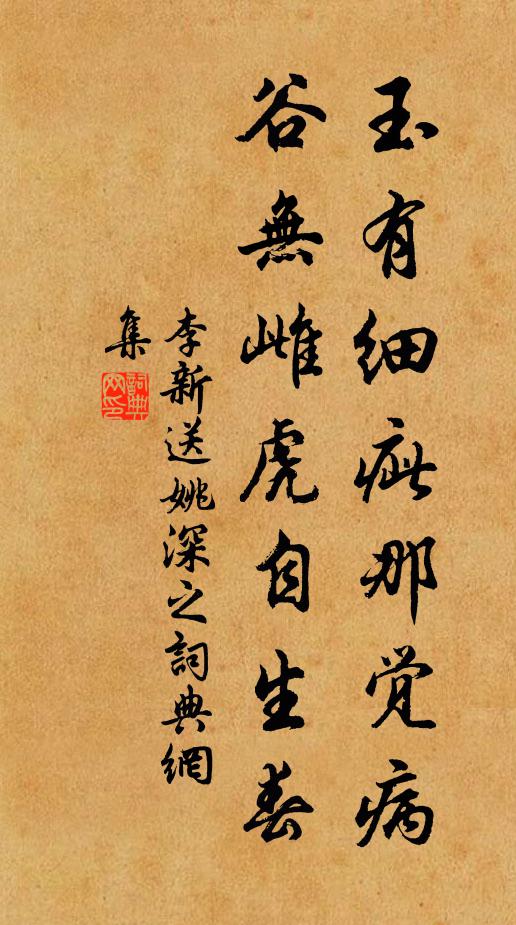 玉有细疵那觉病
谷無雌虎自生春
李新送姚深之詞典網
集
詞典
网印